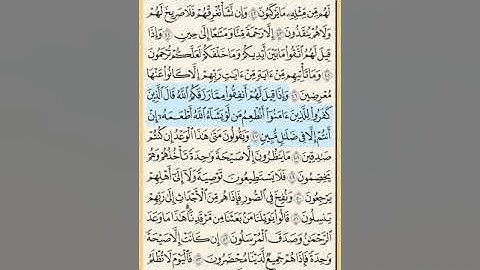 لَهُم مِّن مِّثْلِهِۦ مَا يَرْكَبُونَ ۝٤٢ وَإِن نَّشَأْ نُغْرِقْهُمْ فَلَا صَرِيخَ لَهُمْ
وَلَا هُمْ يُنقَذُونَ ۝٤٣ إِلَّا رَحْمَةً مِّنَّا وَمَتَٰعًا إِلَىٰ حِينٍ ۝٤٤ وَإِذَا
قِيلَ لَهُمُ ٱتَّقُوا۟ مَا بَيْنَ أَيْدِيكُمْ وَمَا خَلْفَكُمْ لَعَلَّكُمْ تُرْحَمُونَ
۝٤٥ وَمَا تَأْتِيهِم مِّنْ ءَايَةٍ مِّنْ ءَايَٰتِ رَبِّهِمْ إِلَّا كَانُوا۟ عَنْهَا
مُعْرِضِينَ ۝٤٦ وَإِذَا قِيلَ لَهُمْ أَنفِقُوا۟ مِمَّا رَزَقَكُمُ ٱللَّهُ قَالَ ٱلَّذِينَ
كَفَرُوا۟ لِلَّذِينَ ءَامَنُوٓا۟ أَنُطْعِمُ مَن لَّوْ يَشَآءُ ٱللَّهُ أَطْعَمَهُۥٓ إِنْ
أَنتُمْ إِلَّا فِى ضَلَٰلٍ مُّبِينٍ ۝٤٧ وَيَقُولُونَ مَتَىٰ هَٰذَا ٱلْوَعْدُ إِن كُنتُمْ
صَٰدِقِينَ ۝٤٨ مَا يَنظُرُونَ إِلَّا صَيْحَةً وَٰحِدَةً تَأْخُذُهُمْ وَهُمْ
يَخِصِّمُونَ ۝٤٩ فَلَا يَسْتَطِيعُونَ تَوْصِيَةً وَلَآ إِلَىٰٓ أَهْلِهِمْ
يَرْجِعُونَ ۝٥٠ وَنُفِخَ فِى ٱلصُّورِ فَإِذَا هُم مِّنَ ٱلْأَجْدَاثِ إِلَىٰ رَبِّهِمْ
يَنسِلُونَ ۝٥١ قَالُوا۟ يَٰوَيْلَنَا مَنۢ بَعَثَنَا مِن مَّرْقَدِنَا هَٰذَا مَا وَعَدَ
ٱلرَّحْمَٰنُ وَصَدَقَ ٱلْمُرْسَلُونَ ۝٥٢ إِن كَانَتْ إِلَّا صَيْحَةً
وَٰحِدَةً فَإِذَا هُمْ جَمِيعٌ لَّدَيْنَا مُحْضَرُونَ ۝٥٣ فَٱلْيَوْمَ لَا تُظْلَمُ